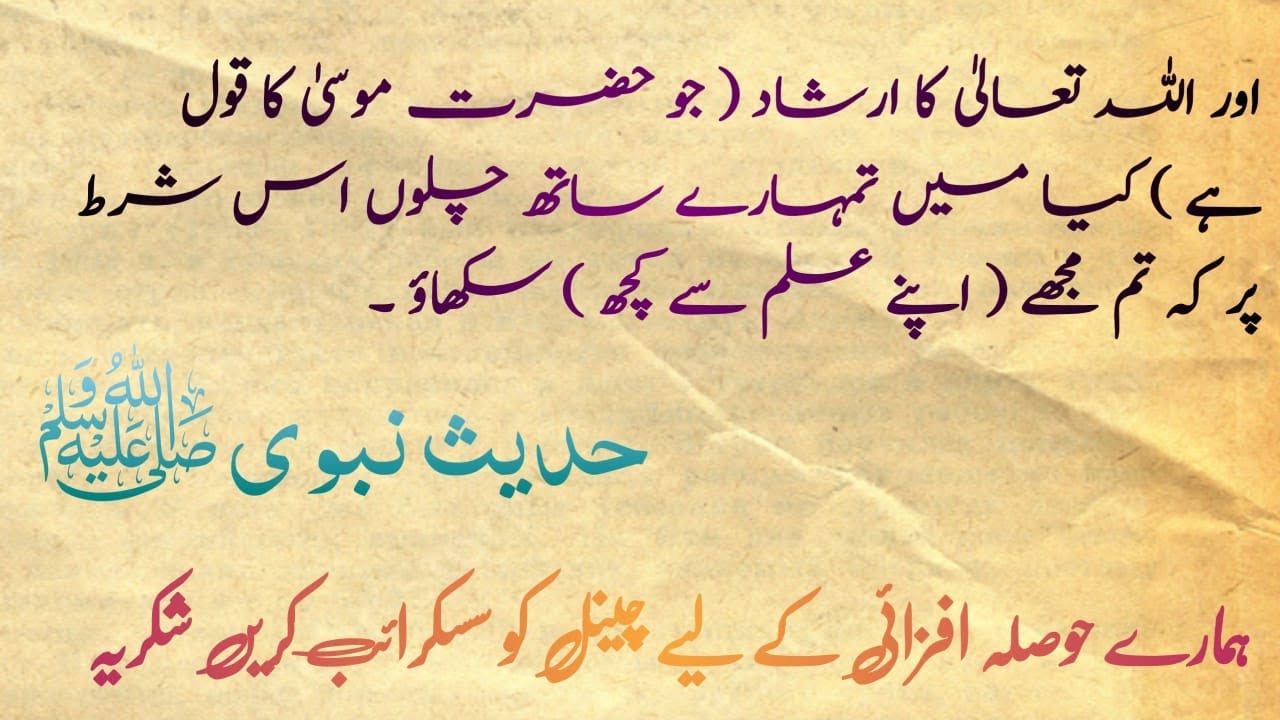 اور اللہ تعالیٰ کا ارشاد ( جو حضرت موسیٰ کا قول
ہے ) کیا میں تمہارے ساتھ چلوں اس شرط
پر کہ تم مجھے ( اپنے علم سے کچھ ) سکھاؤ ۔
حدیث نبوی صلى الله عليه وسلم
ہمارے حوصلہ افزائی کے لیے چینل کو سسکرائب کریں شکریہ